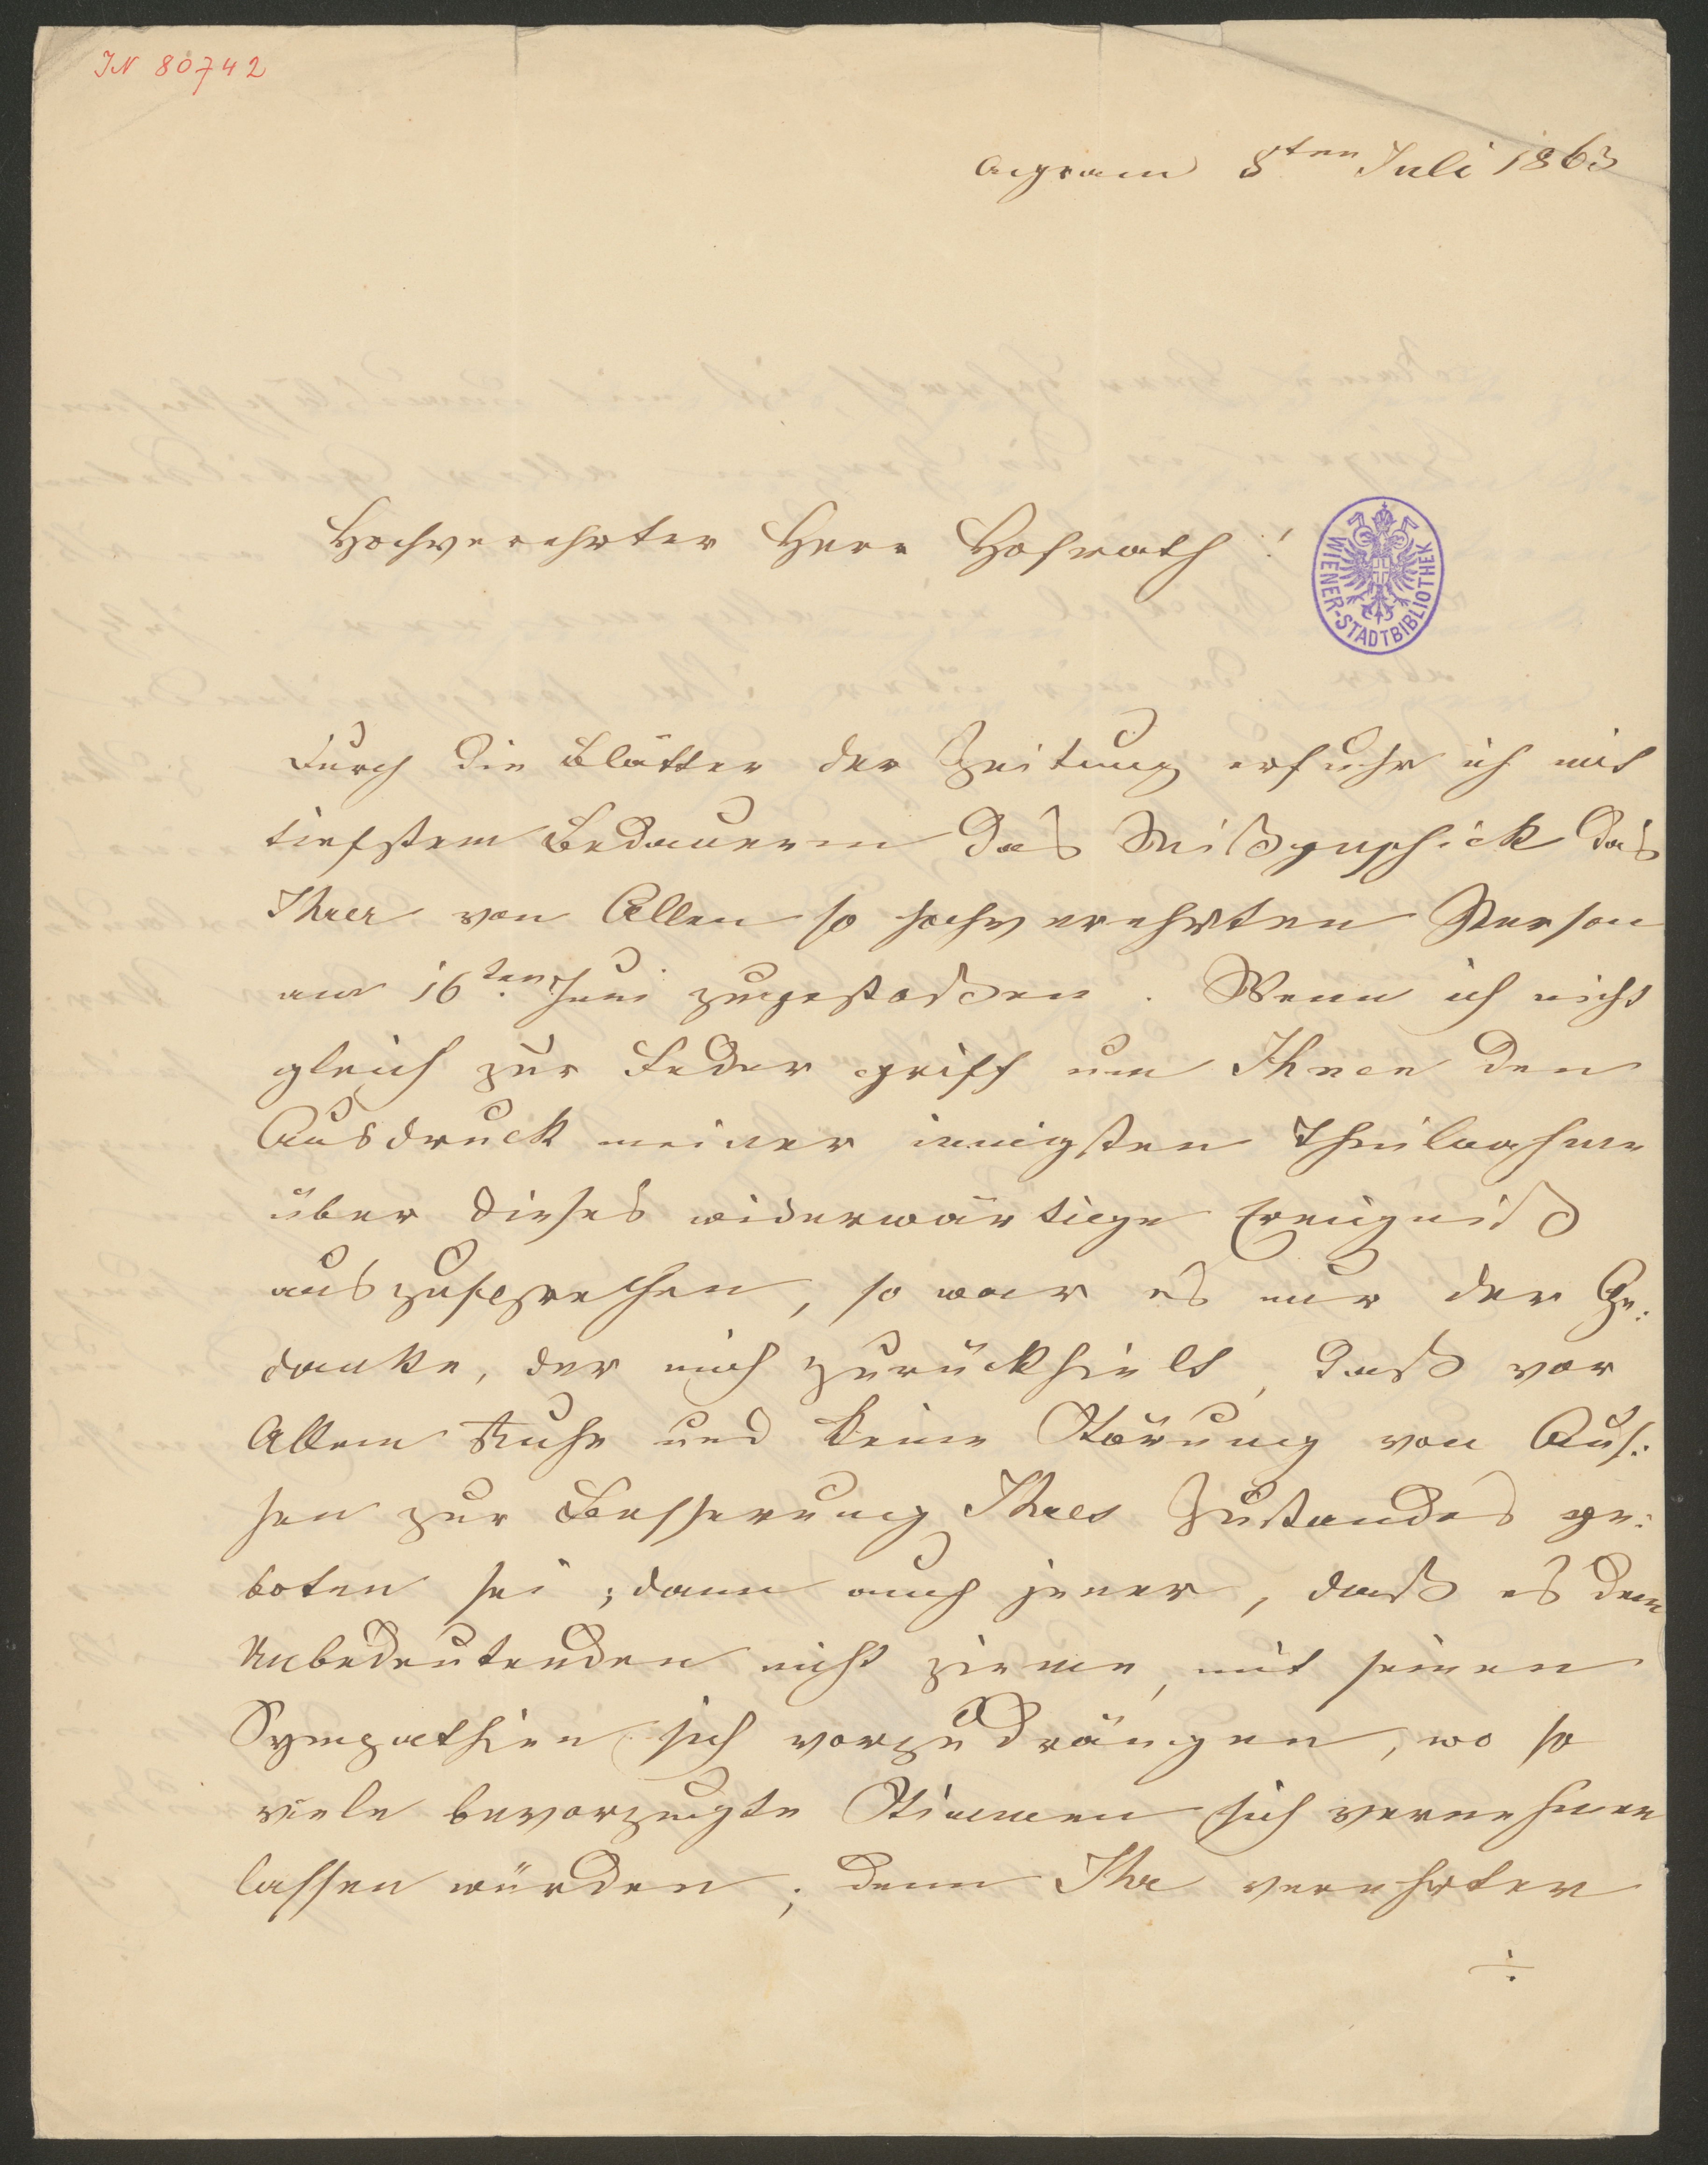 IN 80742
Agram 8ten Juli 1863
Hochverehrter Herr Hofrath!
WIENER-STADTBIBLIOTHEK
Durch die Blätter der Zeitung erfuhr ich mit
tiefstem Bedauern das Mißgeschick das
Ihrer von Allen so hochverehrten Person
am 16ten Juni zugestoßen. Wenn ich nicht
gleich zur Feder griff um Ihnen den
Ausdruck meiner innigsten Theilnahme
über dieses widerwärtige Ereigniß
auszusprechen, so war es nur der Ge:
danke, der mich zurückhielt, daß vor
Allem Ruhe und keine Störung von Aus:
sen zur Besserung Ihres Zustandes ge:
boten sei; dann auch jener, daß es dem
Unbedeutenden nicht zieme, mit seinen
Sympathien sich vorzudrängen, wo so
viele bevorzugte Stimmen sich vernehmen
lassen würden; denn Ihr verehrter
÷